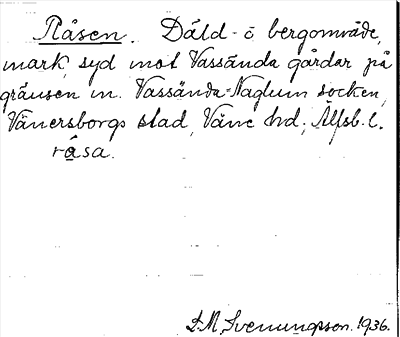 Råsen. Däld- o bergområde,
mark, syd mot Vassända gårdar på
gränsen m. Vassända-Naglum socken,
Vänersborgs stad, Väne hd; Älfsb. l.
råsa.
D.M. Svenungsson. 1936.